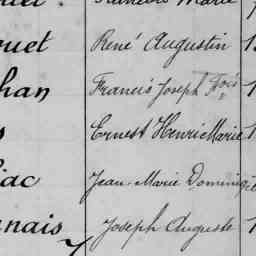 ouet René Augustin
han Francis Joseph Fois
Ernest Henri Marie
iac Jean Marie Dominiq
nais Joseph Auguste